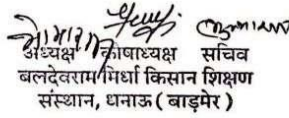 अध्यक्ष कोषाध्यक्ष सचिव
बलदेवराम मिर्धा किसान शिक्षण
संस्थान, धनाऊ (बाड़मेर)